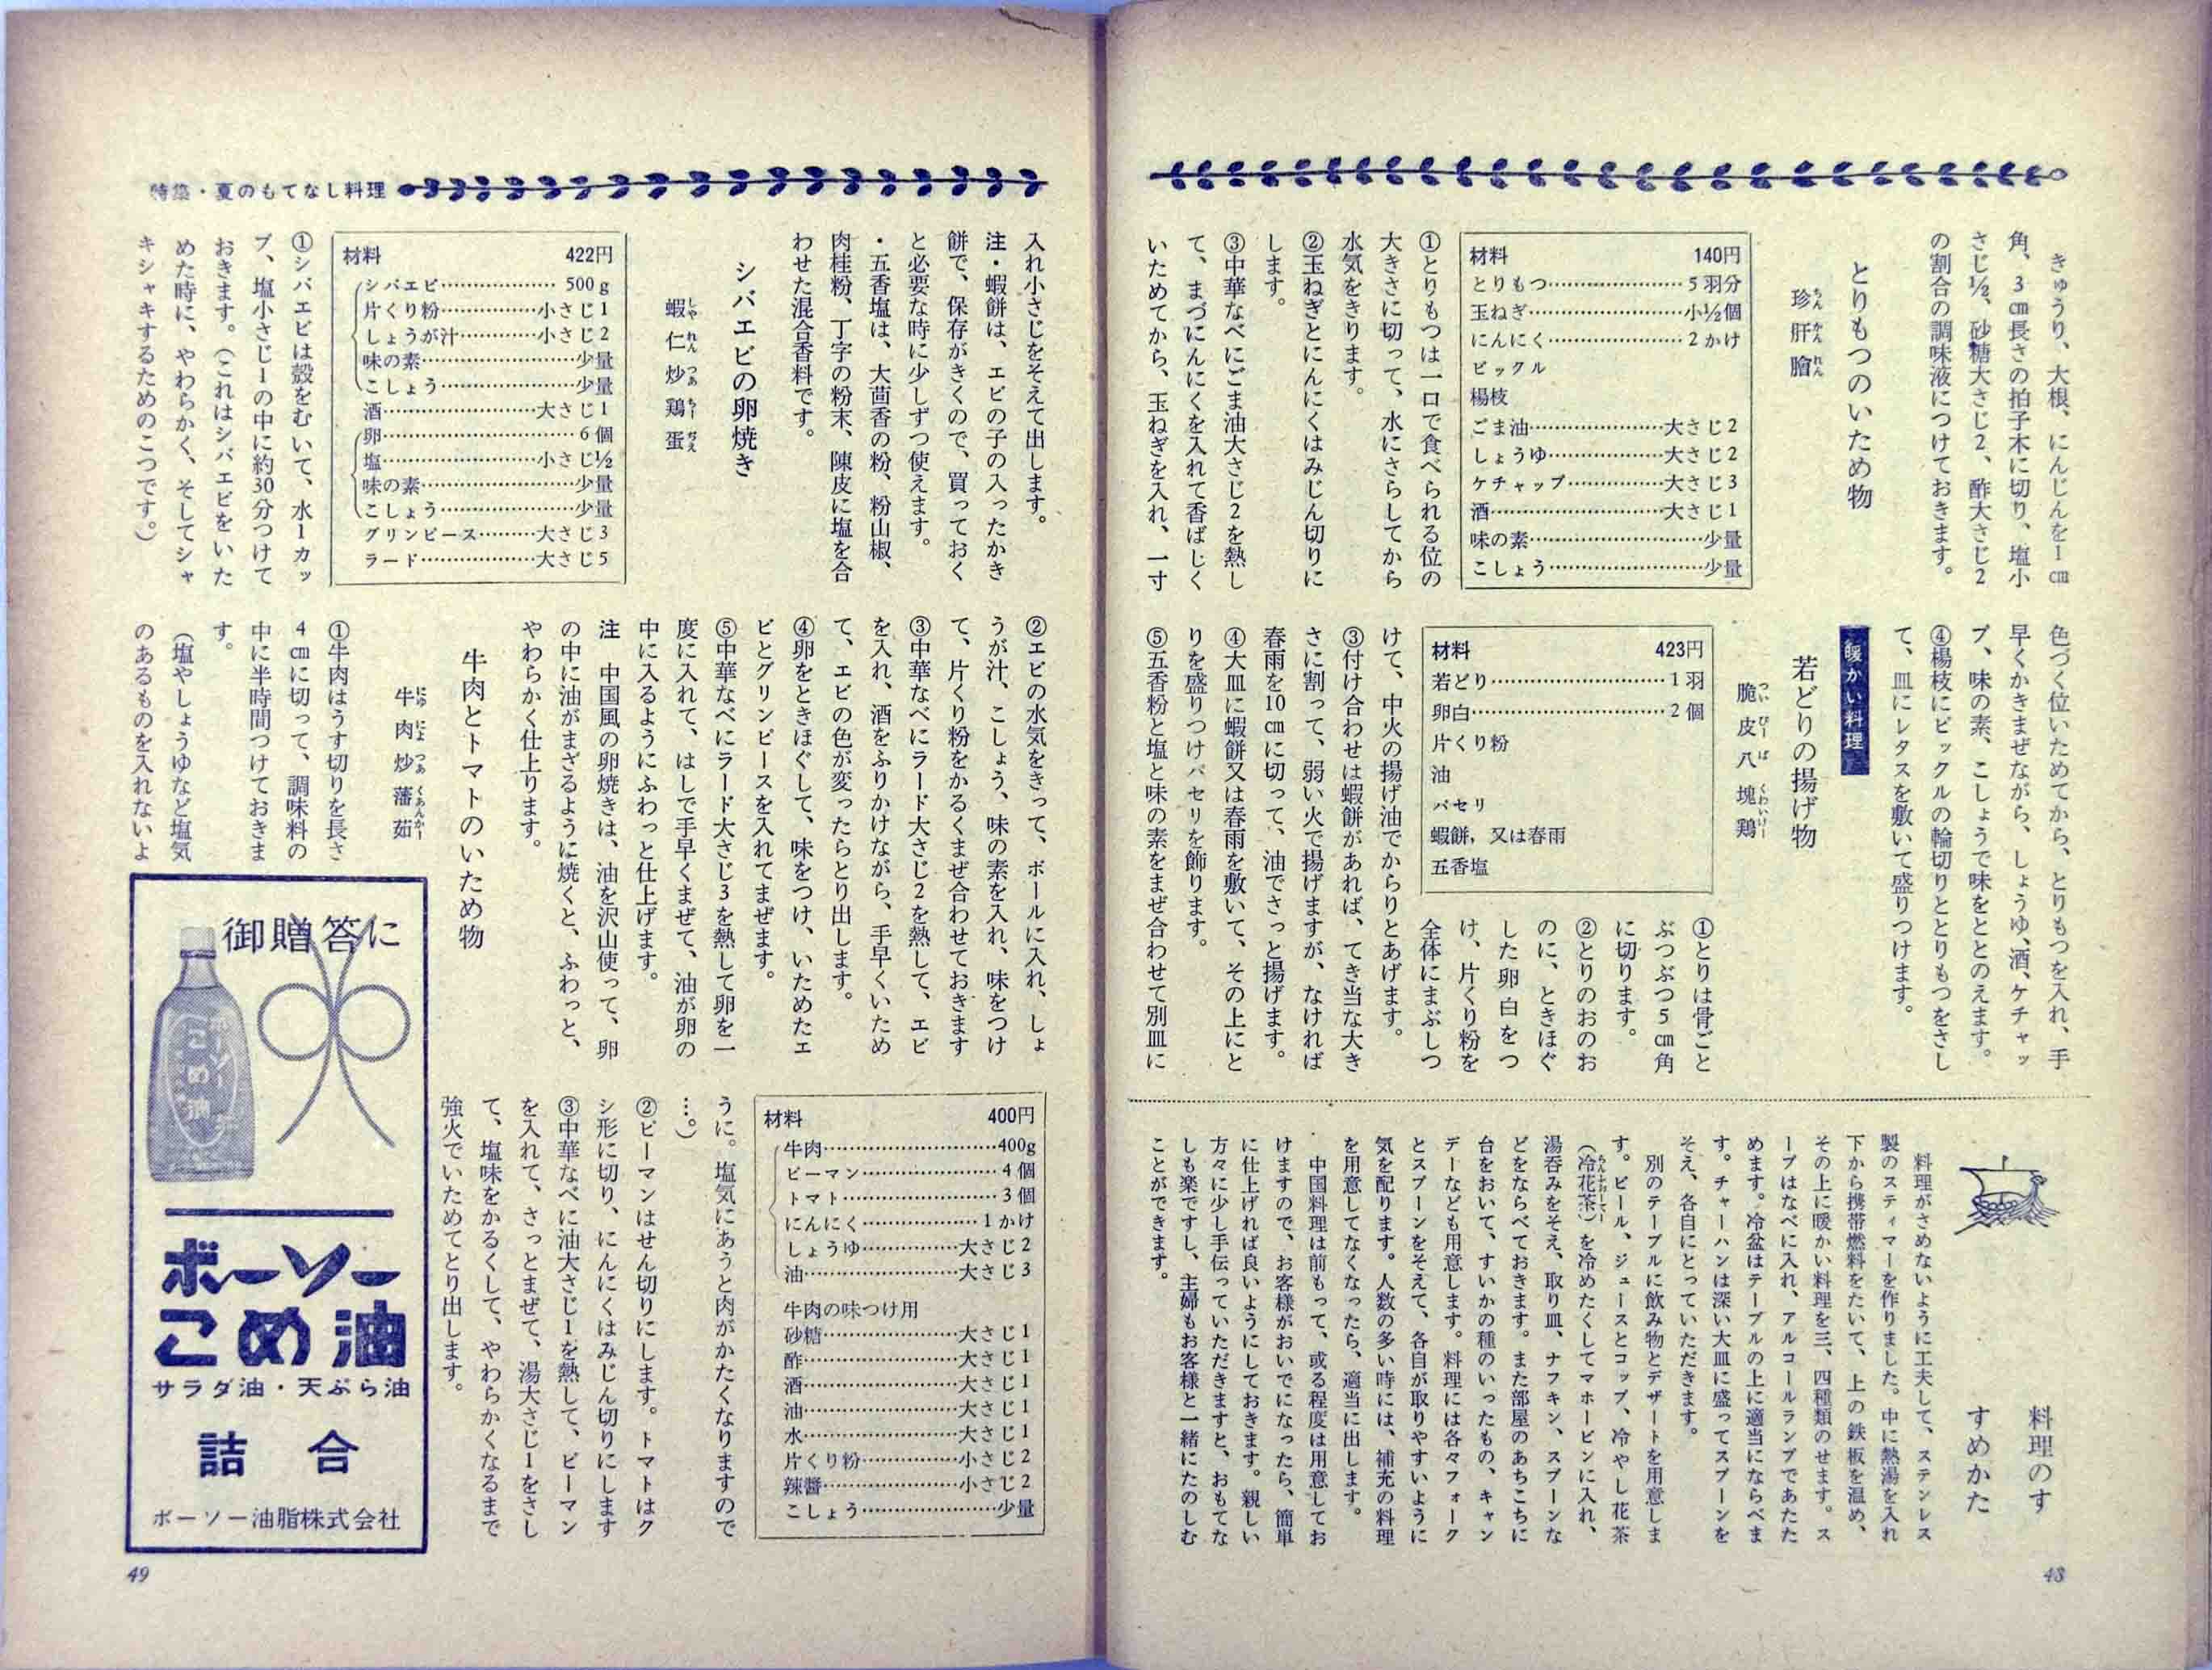 きゅうり、大根、にんじんを1cm
角、3cm長さの拍子木に切り、塩小
さじ½、砂糖大さじ2、酢大さじ2
の割合の調味液につけておきます。
とりもつのいため物
珍肝膾
ちんかんれん
材料 140円
とりもつ……………………5羽分
玉ねぎ……………………小½個
にんにく……………………2かけ
ピックル
楊枝
ごま油…………………大さじ2
しょうゆ………………大さじ2
ケチャップ……………大さじ3
酒………………………大さじ1
味の素……………………少量
こしょう…………………少量
①とりもつは一口で食べられる位の
大きさに切って、水にさらしてから
水気をきります。
②玉ねぎとにんにくはみじん切りに
します。
③中華なべにごま油大さじ2を熱し
て、まづにんにくを入れて香ばしく
いためてから、玉ねぎを入れ、一寸
色づく位いためてから、とりもつを入れ、手
早くかきまぜながら、しょうゆ、酒、ケチャッ
プ、味の素、こしょうで味をととのえます。
④楊枝にピックルの輪切りととりもつをさし
て、皿にレタスを敷いて盛りつけます。
暖かい料理
若どりの揚げ物
脆皮八塊鶏
つぃぴーば くわいけー
材料 423円
若どり……………………1羽
卵白………………………2個
片くり粉
油
パセリ
蝦餅，又は春雨
五香塩
①とりは骨ごと
ぶつぶつ5cm角
に切ります。
②とりのおのお
のに、ときほぐ
した卵白をつ
け、片くり粉を
全体にまぶしつ
けて、中火の揚げ油でからりとあげます。
③付け合わせは蝦餅があれば、てき当な大き
さに割って、弱い火で揚げますが、なければ
春雨を10cmに切って、油でさっと揚げます。
④大皿に蝦餅又は春雨を敷いて、その上にと
りを盛りつけパセリを飾ります。
⑤五香粉と塩と味の素をまぜ合わせて別皿に
料理のす
すめかた
料理がさめないように工夫して、ステンレス
製のスティマーを作りました。中に熱湯を入れ
下から携帯燃料をたいて、上の鉄板を温め、
その上に暖かい料理を三、四種類のせます。ス
ープはなべに入れ、アルコールランプであたた
めます。冷盆はテーブルの上に適当にならべま
す。チャーハンは深い大皿に盛ってスプーンを
そえ、各自にとっていただきます。
別のテーブルに飲み物とデザートを用意しま
す。ビール、ジュースとコップ、冷やし花茶
（冷花茶）を冷めたくしてマホービンに入れ、
湯呑みをそえ、取り皿、ナフキン、スプーンな
どをならべておきます。また部屋のあちこちに
台をおいて、すいかの種のいったもの、キャン
デーなども用意します。料理には各々フォーク
とスプーンをそえて、各自が取りやすいように
気を配ります。人数の多い時には、補充の料理
を用意してなくなったら、適当に出します。
中国料理は前もって、或る程度は用意してお
けますので、お客様がおいでになったら、簡単
に仕上げれば良いようにしておきます。親しい
方々に少し手伝っていただきますと、おもてな
しも楽ですし、主婦もお客様と一緒にたのしむ
ことができます。
特集・夏のもてなし料理
入れ小さじをそえて出します。
注・蝦餅は、エビの子の入ったかき
餅で、保存がきくので、買っておく
と必要な時に少しずつ使えます。
・五香塩は、大茴香の粉、粉山椒、
肉桂粉、丁字の粉末、陳皮に塩を合
わせた混合香料です。
シバエビの卵焼き
蝦仁炒鶏蛋
材料 422円
シバエビ………………500g
片くり粉……………小さじ1
しょうが汁…………小さじ2
味の素…………………少量
こしょう………………少量
酒……………………大さじ1
卵………………………6個
塩…………………小さじ½
味の素…………………少量
こしょう………………少量
グリンピース………大さじ3
ラード………………大さじ5
①シバエビは殻をむいて、水1カッ
プ、塩小さじ1の中に約30分つけて
おきます。（これはシバエビをいた
めた時に、やわらかく、そしてシャ
キシャキするためのこつです。）
②エビの水気をきって、ボールに入れ、しょ
うが汁、こしょう、味の素を入れ、味をつけ
て、片くり粉をかるくまぜ合わせておきます
③中華なべにラード大さじ2を熱して、エビ
を入れ、酒をふりかけながら、手早くいため
て、エビの色が変ったらとり出します。
④卵をときほぐして、味をつけ、いためたエ
ビとグリンピースを入れてまぜます。
⑤中華なべにラード大さじ3を熱して卵を一
度に入れて、はしで手早くまぜて、油が卵の
中に入るようにふわっと仕上げます。
注 中国風の卵焼きは、油を沢山使って、卵
の中に油がまざるように焼くと、ふわっと、
やわらかく仕上ります。
牛肉とトマトのいため物
牛肉炒藩茄
①牛肉はうす切りを長さ
4cmに切って、調味料の
中に半時間つけておきま
す。
（塩やしょうゆなど塩気
のあるものを入れないよ
材料 400円
牛肉……………………400g
ピーマン………………4個
トマト…………………3個
にんにく………………1かけ
しょうゆ……………大さじ2
油……………………大さじ3
牛肉の味つけ用
砂糖…………………大さじ1
酢……………………大さじ1
酒……………………大さじ1
油……………………大さじ1
水……………………大さじ1
片くり粉……………小さじ2
辣醬…………………小さじ2
こしょう………………少量
うに。塩気にあうと肉がかたくなりますので
…。）
②ピーマンはせん切りにします。トマトはク
シ形に切り、にんにくはみじん切りにします
③中華なべに油大さじ1を熱して、ピーマン
を入れて、さっとまぜて、湯大さじ1をさし
て、塩味をかるくして、やわらかくなるまで
強火でいためてとり出します。
御贈答に
ボーソー
こめ油
ボーソー
こめ油
サラダ油・天ぷら油
詰合
ボーソー油脂株式会社
49